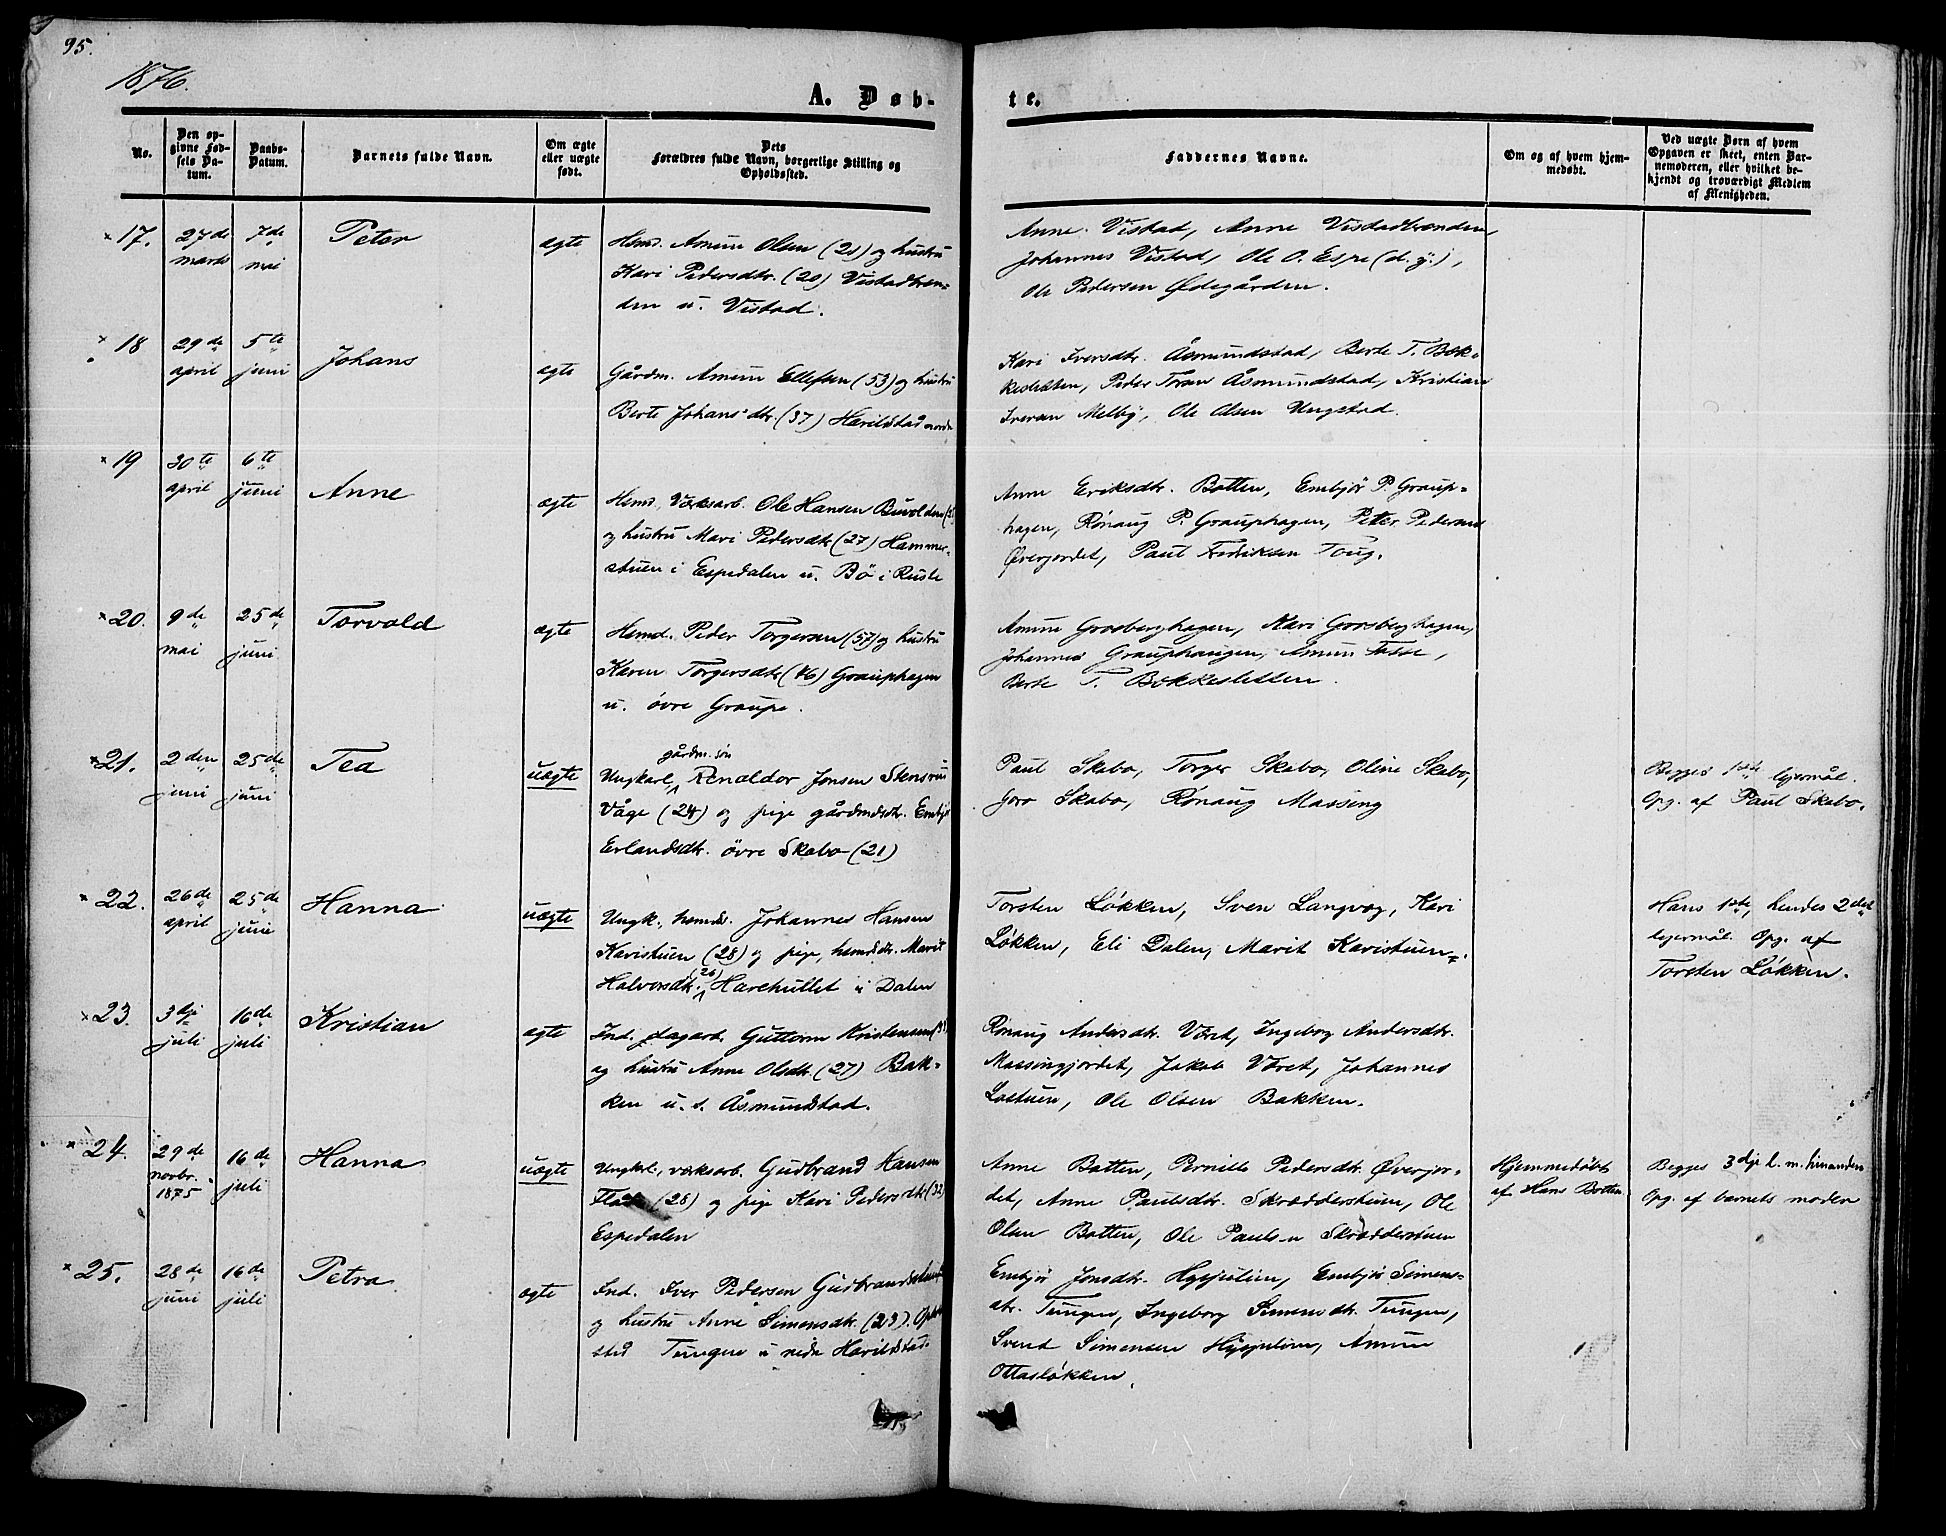 95.
1876.
A. Døb-
te.
No.
Den op-
givne Fød-
sels Da-
tum.
Daabs-
Datum.
Barnets fulde Navn.
Om ægte
eller uægte
født.
Dets
Forældres fulde Navn, borgerlige Stilling og
Opholdssted.
Faddernes Navne.
Om og af hvem hjem-
medøbt.
Ved uægte Børn af hvem
Opgaven er skeet, enten Bar-
nemoderen, eller hvilket be-
kjendt og troværdigt Medlem
af Menigheden.
× 17. 27de marts 7de mai Peter ægte
Hsmd. Amun Olsen (21) og hustru
Kari Pedersdtr. (20) Vistadbræn-
den u. Vistad.
Anne Vistad, Anne Vistadbrænden,
Johannes Vistad, Ole O. Espe (d. y.),
Ole Pedersen Ødegården.
× 18 29de april 5te juni Johans ægte
Gårdm. Amun Ellefsen (53) og hustru
Berte Johansdtr. (37) Harildstad nordre
Kari Iversdtr. Åsmundstad, Berte T. Bæk-
kesletten, Peder Toran Åsmundstad, Kristian
Iversen Melby, Ole Olsen Ungstad.
× 19 30te april 6te juni Anne ægte
Hsmd., Værksarb. Ole Hansen Buvolden
og hustru Mari Pedersdtr (27) Hammer-
stuen i Espedalen u. Bø i Ruste
Anne Eriksdtr. Botten, Embjør P. Graup-
hagen, Rønaug P. Grauphagen, Petter Pedersen
Øverjordet, Paul Fredriksen Toug.
× 20. 9de mai 25de juni Torvald ægte
Hsmd. Peder Torgersen (57) og hustru
Karen Torgersdtr (46) Grauphagen
u. øvre Graupe.
Amun Grosberghagen, Kari Grosberghagen,
Johannes Grauphaugen, Amun Tasse,
Berte T. Bækkesletten.
× 21. 2den juni 25de juni Tea uægte
gårdm. søn
Ungkarl, Renaldor Jonsen Stensrud
Våge (24) og pige gårdmdsdtr. Embjør
Erlandsdtr. øvre Skabo (21)
Paul Skabo, Torger Skabo, Oline Skabo,
Goro Skabo, Rønaug Massing
Begges 1ste lejermål.
Opg. af Paul Skabo.
× 22. 26de april 25de juni Hanna uægte
Ungk., hsmds. Johannes Hansen
Karistuen (28) og pige, hsmds.dtr. Marit
Halvorsdtr. (26) Harehullet i Dalen
Torsten Løkken, Sven Langvæg, Kari
Løkken, Eli Dalen, Marit Karistuen.
Hans 1ste, hendes 2det
lejermål. Opg. af
Torsten Løkken.
× 23. 3dje juli 16de juli Kristian ægte
Ind. dagarb. Guttorm Kristensen
og hustru Anne Olsdtr. (27) Bak-
ken u. s. Åsmundstad.
Rønaug Andersdtr. Våret, Ingeborg Andersdtr.
Massingjordet, Jakob Våret, Johannes
Løstuen, Ole Olsen Bakken.
× 24. 29de novbr. 1875 16de juli Hanna uægte
Ungkarl, værksarb. Gudbrand Hansen
(28) og pige Kari Pedersdtr (32)
Espedalen
Anne Botten, Pernille Pedersdtr. Øverjor-
det, Anne Paulsdtr. Skrædderstuen, Ole
Olsen Botten, Ole Paulsen Skrædderstuen
Hjemmedøbt
af Hans Botten
Begges 3dje l. m. hinanden
Opg. af barnets moder
× 25. 28de juni 16de juli Petra ægte
Ind. Iver Pedersen
og hustru Anne Simensdtr. (23). Ophold-
sted Tungen u nedre Harildstad.
Embjør Jonsdtr. Hysjulien, Embjør Simens-
dtr. Tungen, Ingeborg Simensdtr. Tungen,
Svend Simensen Hysjulien, Amun
Ottasløkken.